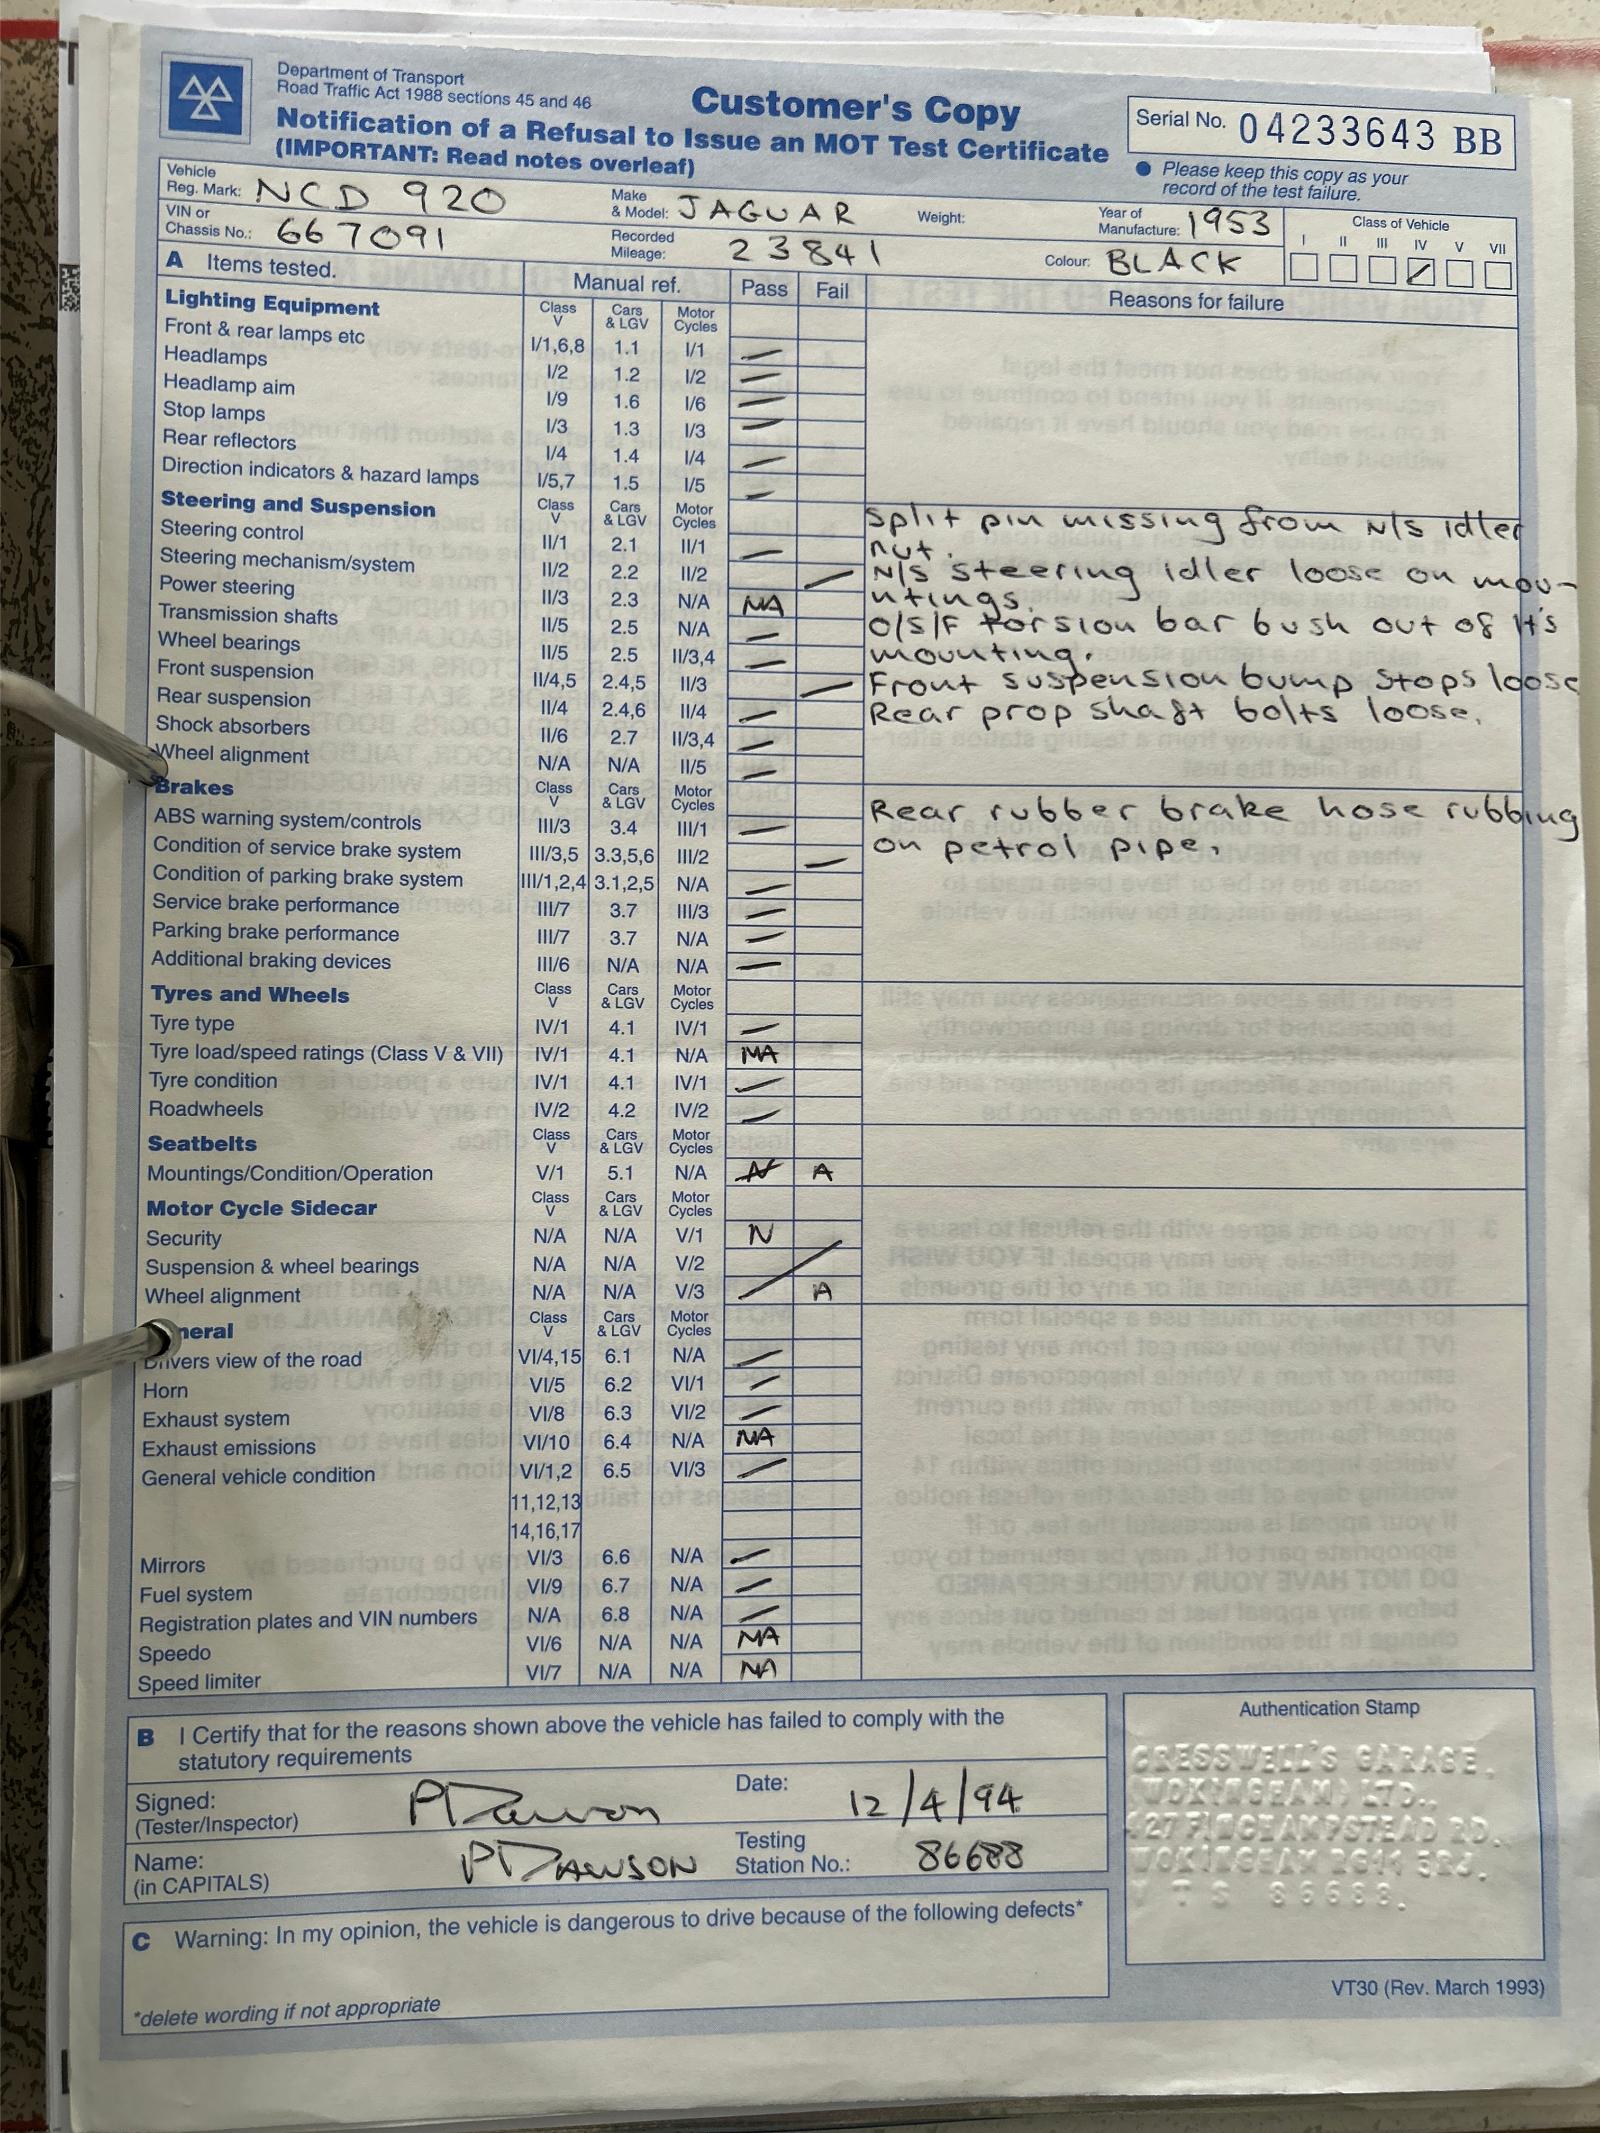 Department of Transport
Road Traffic Act 1988 sections 45 and 46
Customer's Copy
Notification of a Refusal to Issue an MOT Test Certificate
(IMPORTANT: Read notes overleaf)
Serial No. 04233643 BB
● Please keep this copy as your
record of the test failure.
Vehicle
Reg. Mark: NCD 920
Make
& Model: JAGUAR
Weight:
Year of
Manufacture: 1953
Class of Vehicle
I II III IV V VII
VIN or
Chassis No.: 667091
Recorded
Mileage: 23841
Colour: BLACK
A Items tested.
Manual ref.
Pass Fail
Reasons for failure
Lighting Equipment Class V Cars & LGV Motor Cycles
Front & rear lamps etc I/1,6,8 1.1 I/1
Headlamps I/2 1.2 I/2
Headlamp aim I/9 1.6 I/6
Stop lamps I/3 1.3 I/3
Rear reflectors I/4 1.4 I/4
Direction indicators & hazard lamps I/5,7 1.5 I/5
Steering and Suspension Class V Cars & LGV Motor Cycles
Steering control II/1 2.1 II/1
Steering mechanism/system II/2 2.2 II/2
Power steering II/3 2.3 N/A NA
Transmission shafts II/5 2.5 N/A
Wheel bearings II/5 2.5 II/3,4
Front suspension II/4,5 2.4,5 II/3
Rear suspension II/4 2.4,6 II/4
Shock absorbers II/6 2.7 II/3,4
Wheel alignment N/A N/A II/5
Split pin missing from N/S idler
nut.
N/S steering idler loose on mou-
ntings.
O/S/F torsion bar bush out of it's
mounting.
Front suspension bump stops loose
Rear prop shaft bolts loose.
Brakes Class V Cars & LGV Motor Cycles
ABS warning system/controls III/3 3.4 III/1
Condition of service brake system III/3,5 3.3,5,6 III/2
Condition of parking brake system III/1,2,4 3.1,2,5 N/A
Service brake performance III/7 3.7 III/3
Parking brake performance III/7 3.7 N/A
Additional braking devices III/6 N/A N/A
Rear rubber brake hose rubbing
on petrol pipe.
Tyres and Wheels Class V Cars & LGV Motor Cycles
Tyre type IV/1 4.1 IV/1
Tyre load/speed ratings (Class V & VII) IV/1 4.1 N/A NA
Tyre condition IV/1 4.1 IV/1
Roadwheels IV/2 4.2 IV/2
Seatbelts Class V Cars & LGV Motor Cycles
Mountings/Condition/Operation V/1 5.1 N/A N A
Motor Cycle Sidecar Class V Cars & LGV Motor Cycles
Security N/A N/A V/1 N
Suspension & wheel bearings N/A N/A V/2
Wheel alignment N/A N/A V/3 A
neral Class V Cars & LGV Motor Cycles
Drivers view of the road VI/4,15 6.1 N/A
Horn VI/5 6.2 VI/1
Exhaust system VI/8 6.3 VI/2
Exhaust emissions VI/10 6.4 N/A NA
General vehicle condition VI/1,2 6.5 VI/3
11,12,13
14,16,17
Mirrors VI/3 6.6 N/A
Fuel system VI/9 6.7 N/A
Registration plates and VIN numbers N/A 6.8 N/A
Speedo VI/6 N/A N/A NA
Speed limiter VI/7 N/A N/A NA
B I Certify that for the reasons shown above the vehicle has failed to comply with the
statutory requirements
Signed:
(Tester/Inspector) PDawson
Date: 12/4/94
Name:
(in CAPITALS) P DAWSON
Testing
Station No.: 86688
C Warning: In my opinion, the vehicle is dangerous to drive because of the following defects*
*delete wording if not appropriate
Authentication Stamp
CRESSWELL'S GARAGE,
(WOKINGHAM) LTD.,
427 FINCHAMPSTEAD RD.
WOKINGHAM RG11
VTS 86688.
VT30 (Rev. March 1993)